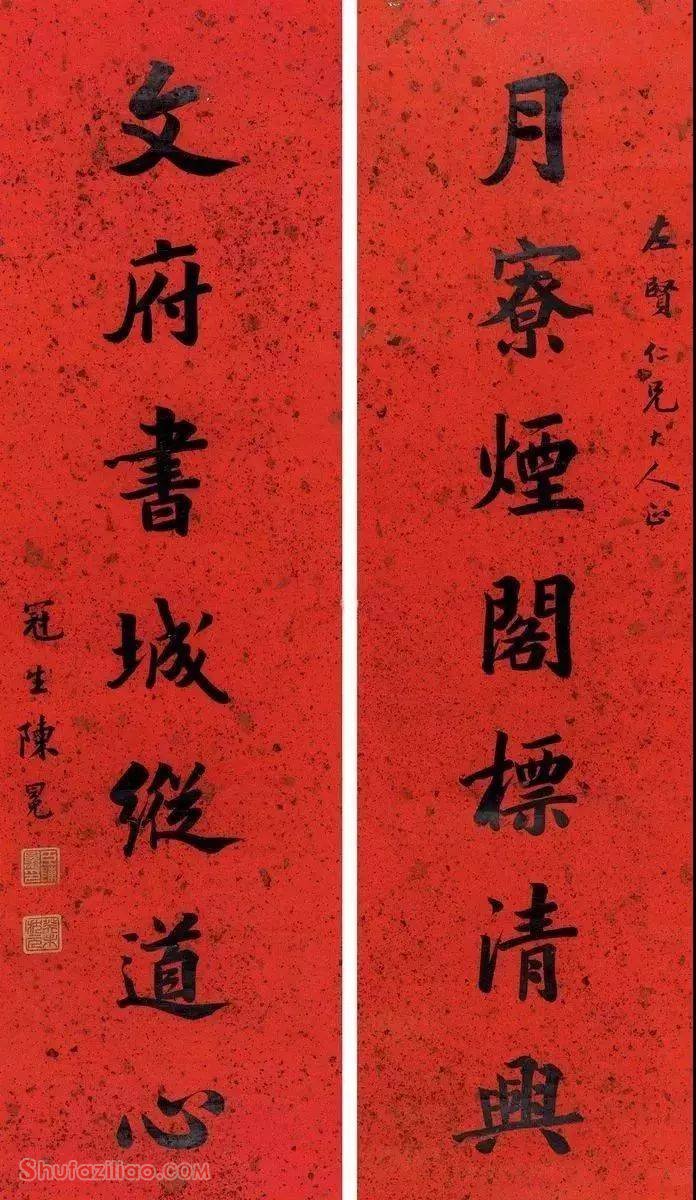 左賢仁兄大人正
月寮煙閣標清興
文府書城縱道心
冠生陳冕
Shufaziliao.com